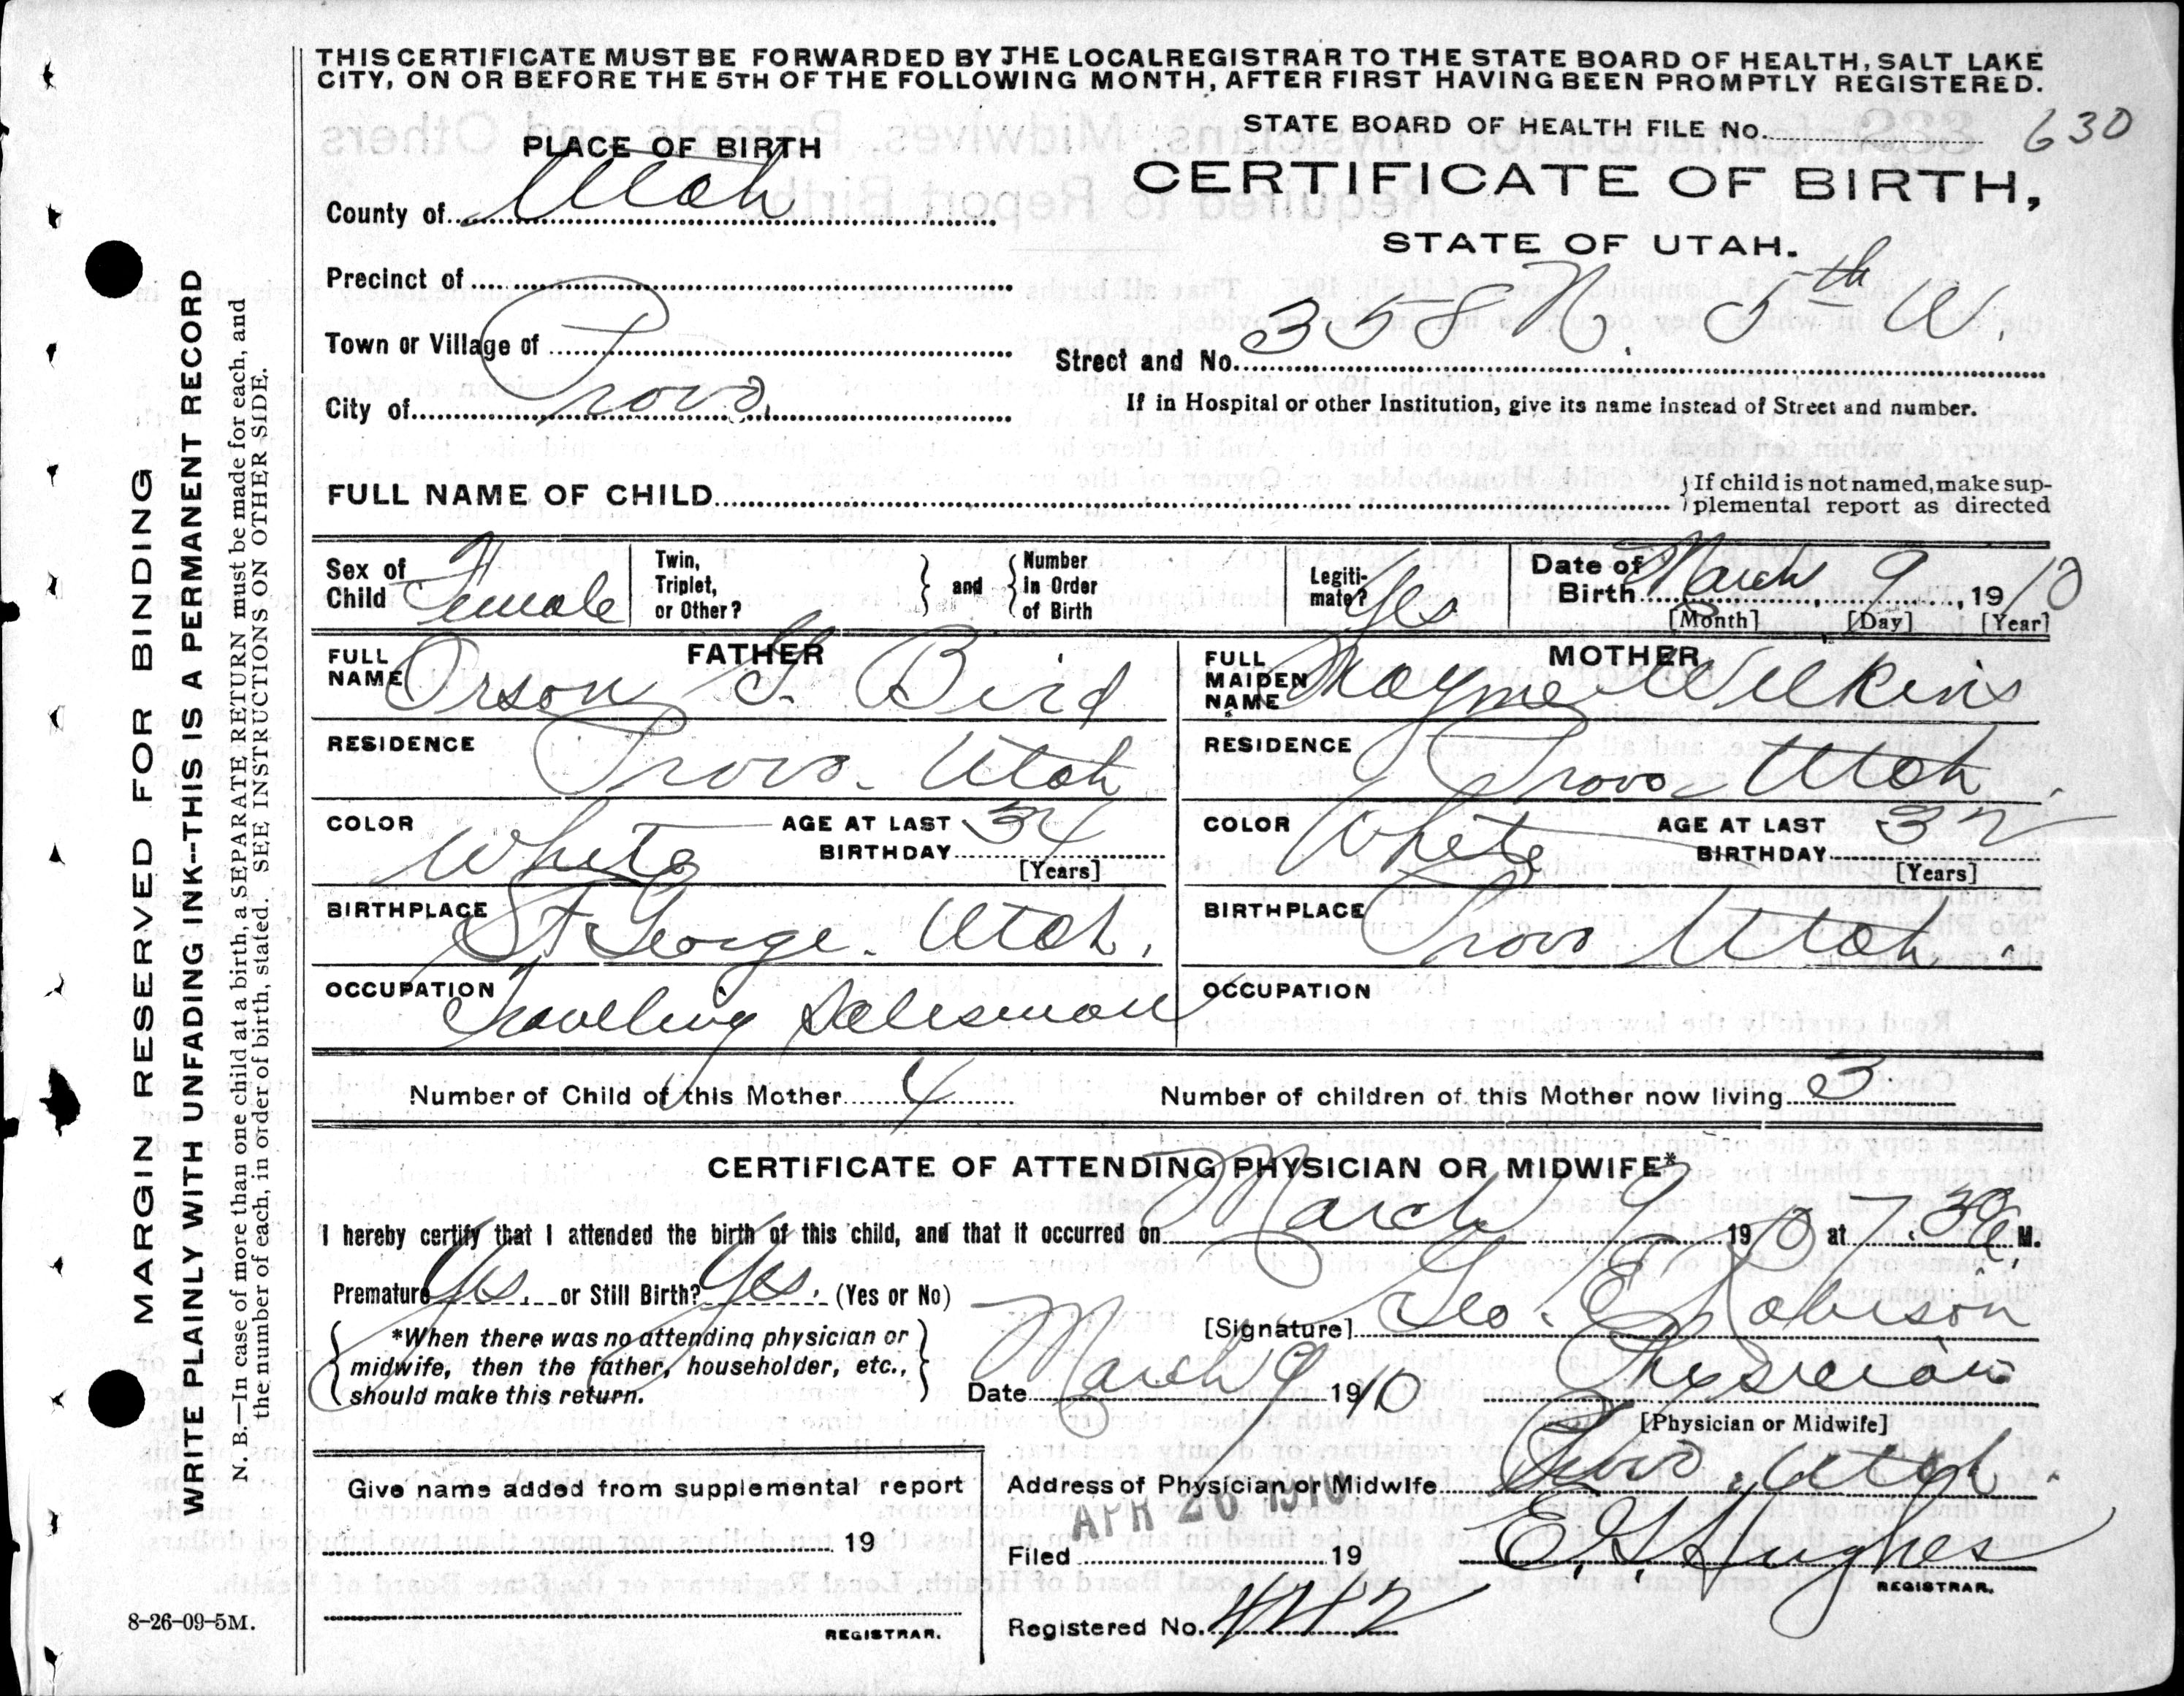 THIS CERTIFICATE MUST BE FORWARDED BY THE LOCAL REGISTRAR TO THE STATE BOARD OF HEALTH, SALT LAKE
CITY, ON OR BEFORE THE 5TH OF THE FOLLOWING MONTH, AFTER FIRST HAVING BEEN PROMPTLY REGISTERED.
STATE BOARD OF HEALTH FILE No. 630
PLACE OF BIRTH
CERTIFICATE OF BIRTH,
County of Utah
STATE OF UTAH.
Precinct of
Town or Village of
Street and No. 358 N. 5th W.
City of Provo.
If in Hospital or other Institution, give its name instead of Street and number.
FULL NAME OF CHILD
If child is not named, make sup-
plemental report as directed
Sex of Child Female
Twin, Triplet, or Other?
and
Number in Order of Birth
Legiti-mate? Yes
Date of Birth March 9, 1910
[Month] [Day] [Year]
FATHER
FULL NAME Orson G. Bird
MOTHER
FULL MAIDEN NAME Mayme Wilkins
RESIDENCE Provo. Utah
RESIDENCE Provo Utah.
COLOR White
AGE AT LAST BIRTHDAY 34 [Years]
COLOR White
AGE AT LAST BIRTHDAY 32 [Years]
BIRTHPLACE St George. Utah.
BIRTHPLACE Provo Utah.
OCCUPATION Travelling Salesman
OCCUPATION
Number of Child of this Mother 4
Number of children of this Mother now living 3
CERTIFICATE OF ATTENDING PHYSICIAN OR MIDWIFE*
I hereby certify that I attended the birth of this child, and that it occurred on March 9 1910 at 7:30 M.
Premature Yes. or Still Birth? Yes. (Yes or No)
[Signature] Geo. E. Robison
*When there was no attending physician or
midwife, then the father, householder, etc.,
should make this return.
Date March 9 1910
Physician
[Physician or Midwife]
Give name added from supplemental report
19
REGISTRAR.
Address of Physician or Midwife Provo, Utah.
APR 26 1910
Filed 19
E. G. Hughes
REGISTRAR.
Registered No.
8-26-09-5M.
MARGIN RESERVED FOR BINDING
WRITE PLAINLY WITH UNFADING INK--THIS IS A PERMANENT RECORD
N. B.—In case of more than one child at a birth, a SEPARATE RETURN must be made for each, and
the number of each, in order of birth, stated. SEE INSTRUCTIONS ON OTHER SIDE.